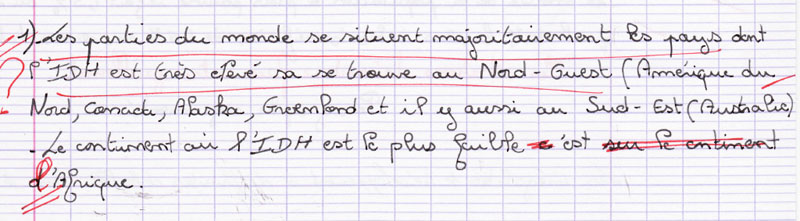 1) - Les parties du monde se situent majoritairement les pays dont
l'IDH est très élevé sa se trouve au Nord - Ouest (Amérique du
Nord, Canada, Alaska, Groenland et il y aussi au Sud - Est (Australie)
- Le continent où l'IDH est le plus faible c'est sur le continent
d'Afrique.